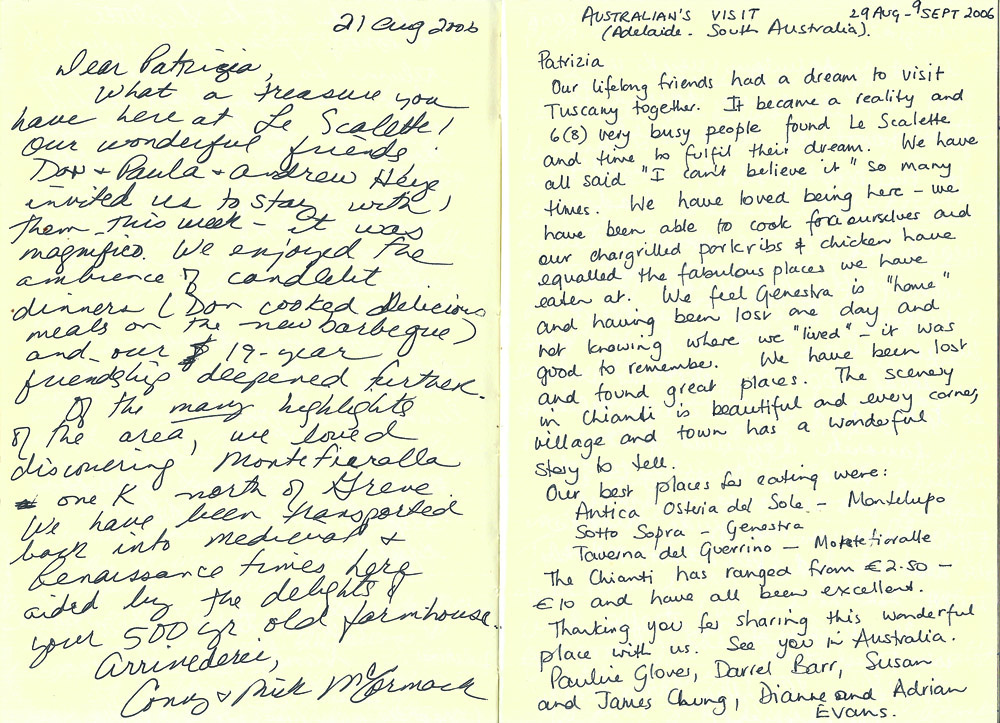 21 Aug 2006
Dear Patrizia,
What a treasure you
have here at Le Scalette!
Our wonderful friends
Don + Paula + Andrew Heye
invited us to stay with
them this week - it was
magnifico. We enjoyed the
ambience of candlelit
dinners (Don cooked delicious
meals on the new barbeque)
and our 19-year
friendship deepened further.
Of the many highlights
of the area, we loved
discovering Montefioralla
one K north of Greve.
We have been transported
back into medieval &
Renaissance times here
aided by the delights of
your 500 yr old farmhouse.
Arrivederci,
& Mick McCormack
AUSTRALIAN'S VISIT 29 AUG - 9 SEPT 2006
(Adelaide - South Australia).
Patrizia
Our lifelong friends had a dream to visit
Tuscany together. It became a reality and
6(8) very busy people found Le Scalette
and time to fulfil their dream. We have
all said "I can't believe it" so many
times. We have loved being here - we
have been able to cook for ourselves and
our chargrilled porkribs & chicken have
equalled the fabulous places we have
eaten at. We feel Genestra is "home"
and having been lost one day and
not knowing where we "lived" - it was
good to remember. We have been lost
and found great places. The scenery
in Chianti is beautiful and every corner,
village and town has a wonderful
story to tell.
Our best places for eating were:
Antica Osteria del Sole - Montelupo
Sotto Sopra - Genestra
Taverna del Guerrino - Montefioralle
The Chianti has ranged from €2.50 -
€10 and have all been excellent.
Thanking you for sharing this wonderful
place with us. See you in Australia.
Pauline Glover, Darrel Barr, Susan
and James Chung, Dianne and Adrian
Evans.